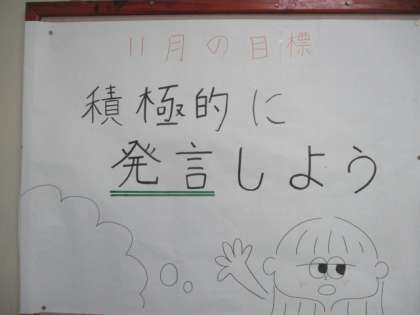 11月の目標
積極的に
発言しよう